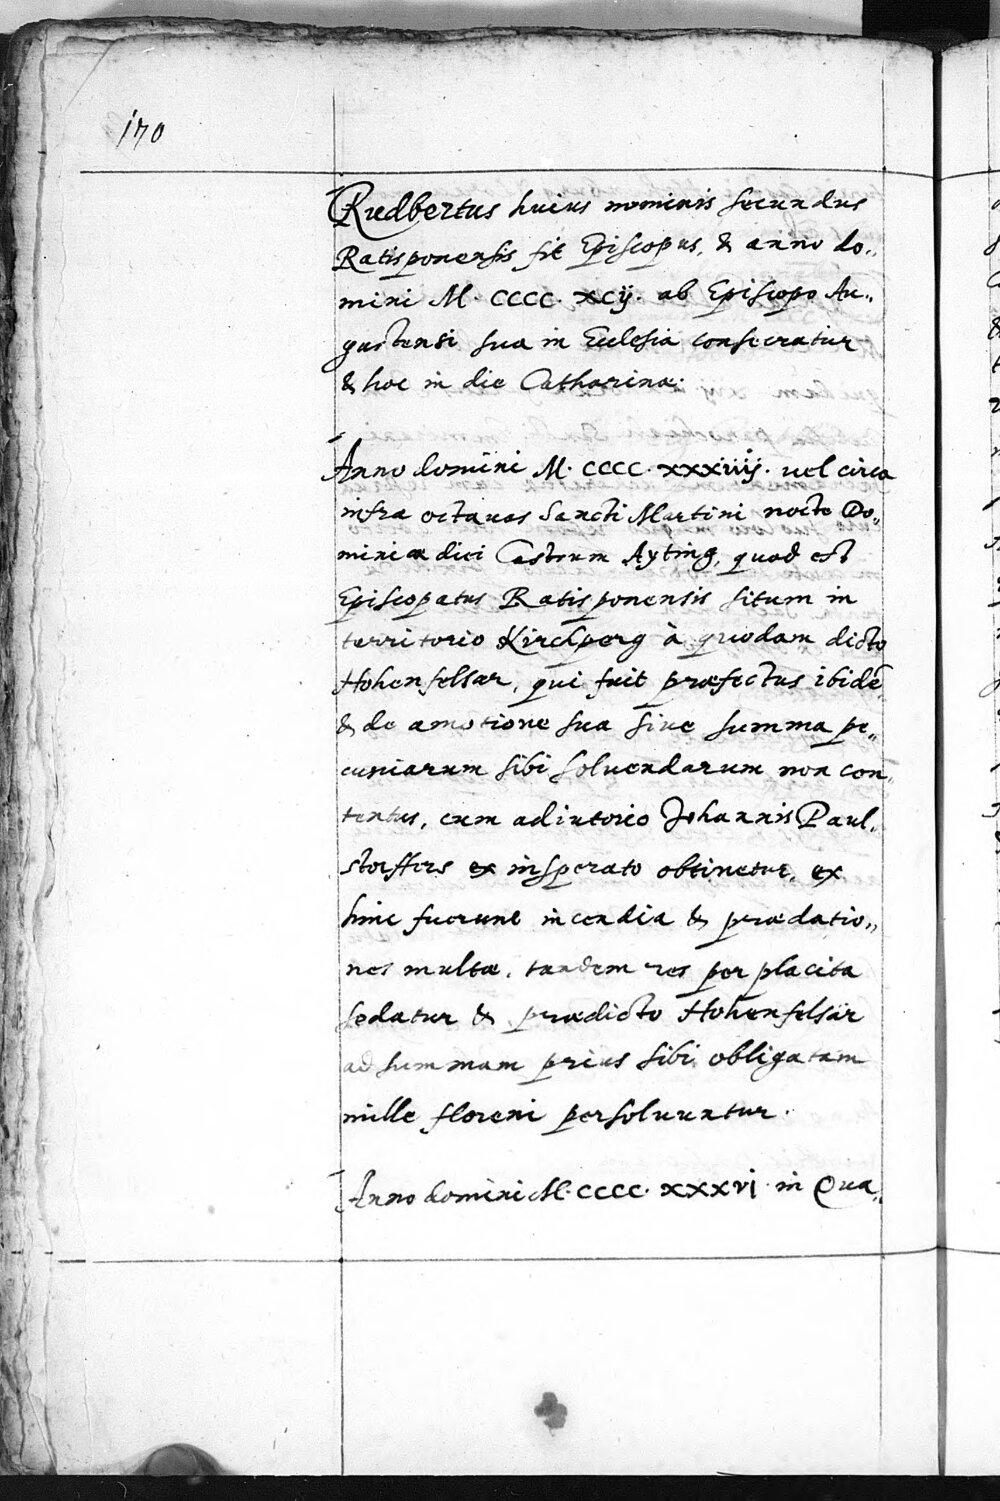 170
Rudbertus huius nominis secundus
Ratisponensis fit Episcopus, & anno do„
mini M. CCCC. XCij. ab Episcopo Au„
gustensi sua in Ecclesia consecratur
& hoc in die Catharinæ.
Anno domini M. CCCC. xxxiiij. uel circa
infra octauas Sancti Martini nocte Do„
minicæ diei Castrum Ayting, quod est
Episcopatus Ratisponensis situm in
territorio Kirchperg à quodam dicto
Hohenfelsar, qui fuit præfectus ibidē
& de amotione sua siue summa pe„
cuniarum sibi soluendarum non con„
tentus, cum adiutorio Johannis Paul„
storffers ex insperato obtinetur, ex
hinc fuerunt incendia & prædatio„
nes multæ, tandem res per placita
sedatur & prædicto Hohenfelsär
ad summam prius sibi obligatam
mille floreni persoluuntur.
Anno domini M. CCCC. xxxvi. in Qua„